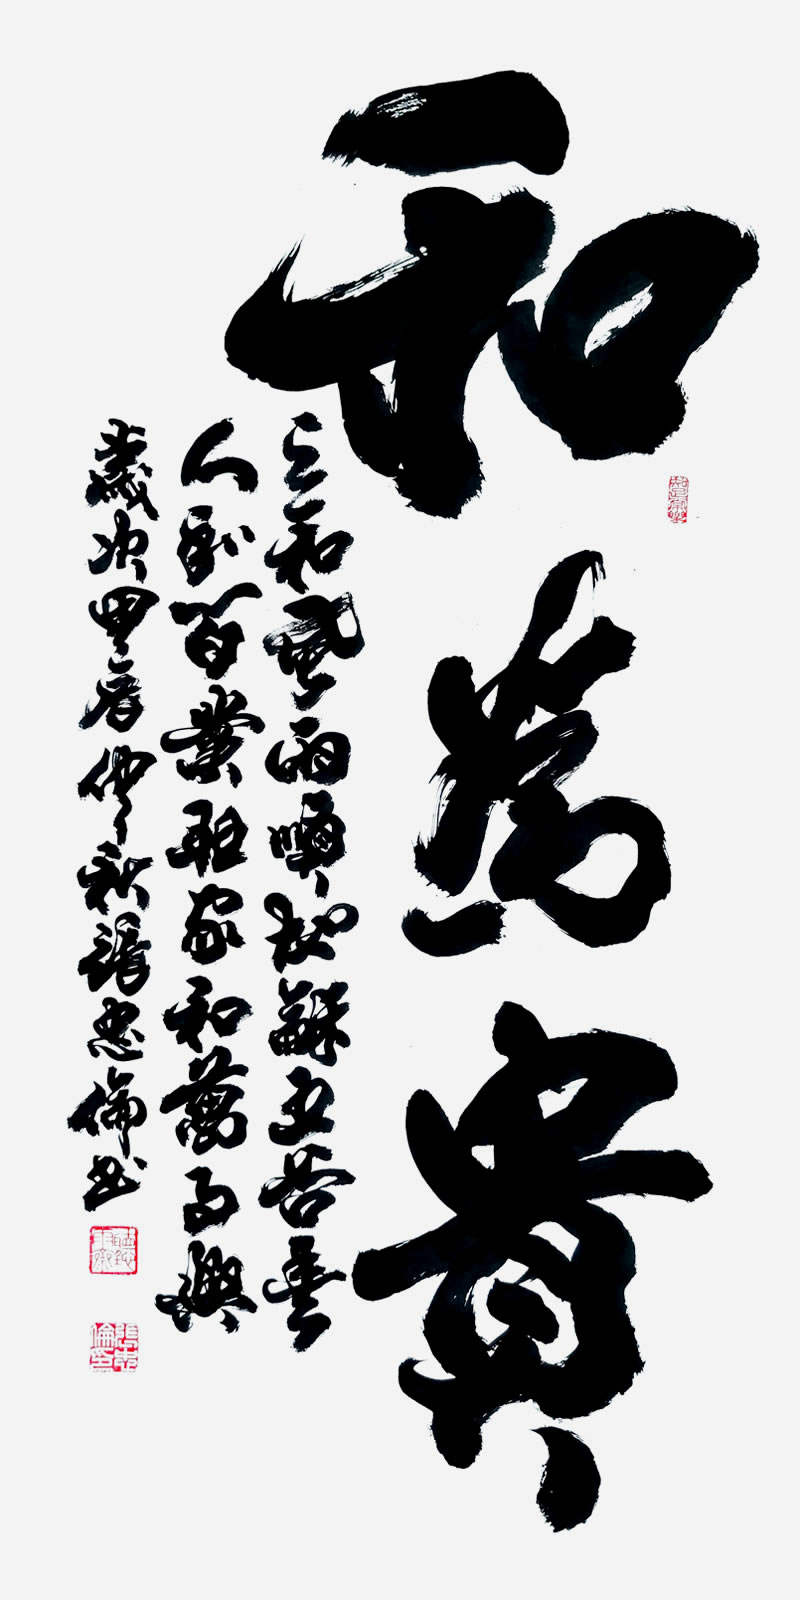 和為貴
天和風雨順地龢五谷豐
人和百業旺家和萬事興
歲次甲辰仲秋張忠倫書
張忠倫印